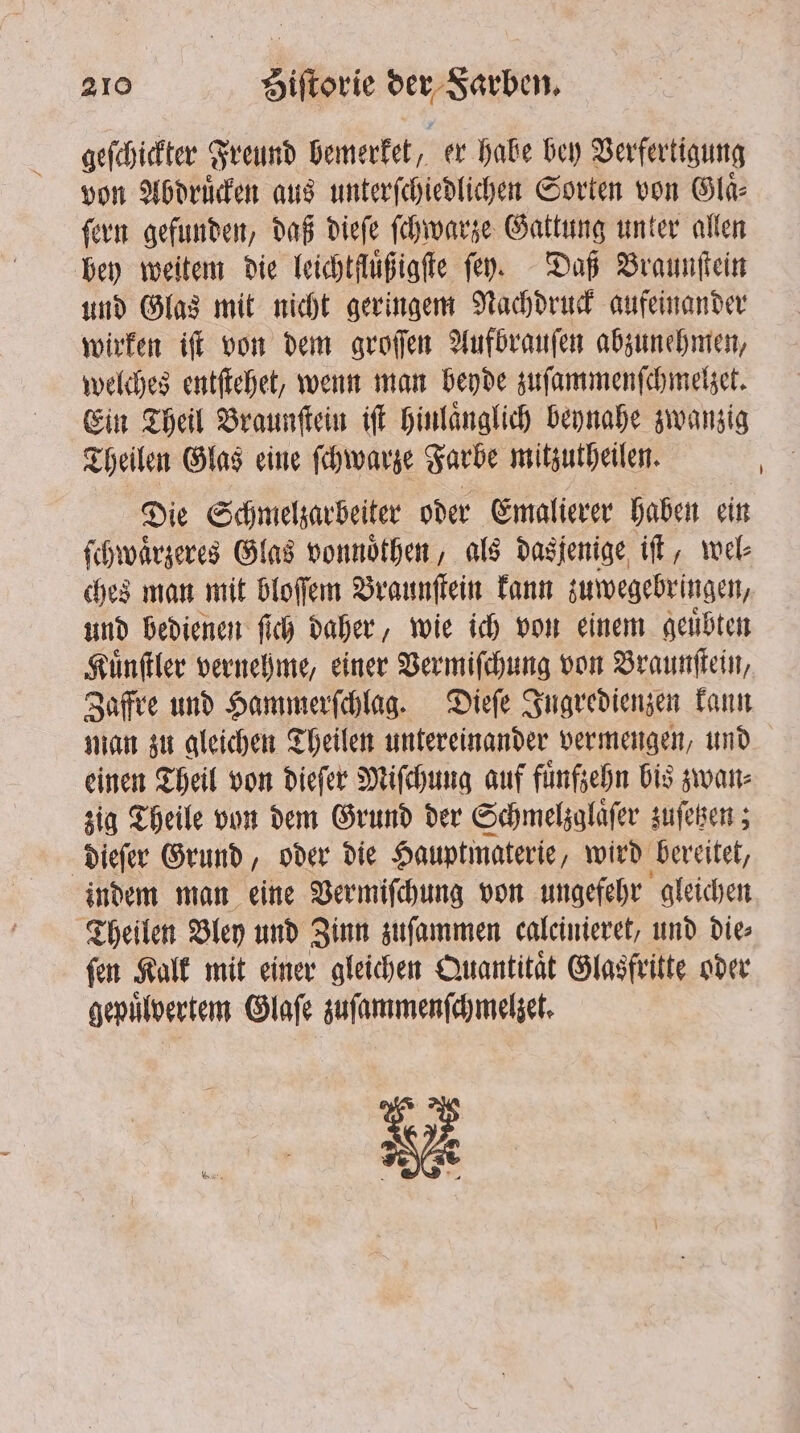 210 Hiſtorie der Farben.
geſchickter Freund bemerket, er habe bey Verfertigung
von Abdruͤcken aus unterſchiedlichen Sorten von Glaͤ⸗
ſern gefunden, daß dieſe ſchwarze Gattung unter allen
bey weitem die leichtfluͤßigſte ſey. Daß Braunſtein
und Glas mit nicht geringem Nachdruck aufeinander
wirken iſt von dem groſſen Aufbrauſen abzunehmen,
welches entſtehet, wenn man beyde zuſammenſchmelzet.
Ein Theil Braunſtein iſt hinlaͤnglich beynahe zwanzig
Theilen Glas eine ſchwarze Farbe mitzutheilen.
Die Schmelzarbeiter oder Emalierer haben ein
ſchwaͤrzeres Glas vonnoͤthen, als dasjenige iſt, wel⸗
ches man mit bloſſem Braunſtein kann zuwegebringen,
und bedienen ſich daher, wie ich von einem geuͤbten
Kuͤnſtler vernehme, einer Vermiſchung von Braunſtein,
Zaffre und Hammerſchlag. Dieſe Ingredienzen kann
man zu gleichen Theilen untereinander vermengen, und
einen Theil von dieſer Miſchung auf fuͤnfzehn bis zwan⸗
zig Theile von dem Grund der Schmelzglaͤſer zuſetzen;
dieſer Grund, oder die Hauptmaterie, wird bereitet,
indem man eine Vermiſchung von ungefehr gleichen
Theilen Bley und Zinn zuſammen calcinieret, und die⸗
ſen Kalk mit einer gleichen Quantitaͤt Glasfritte oder
gepuͤlvertem Glaſe zuſammenſchmelzet.